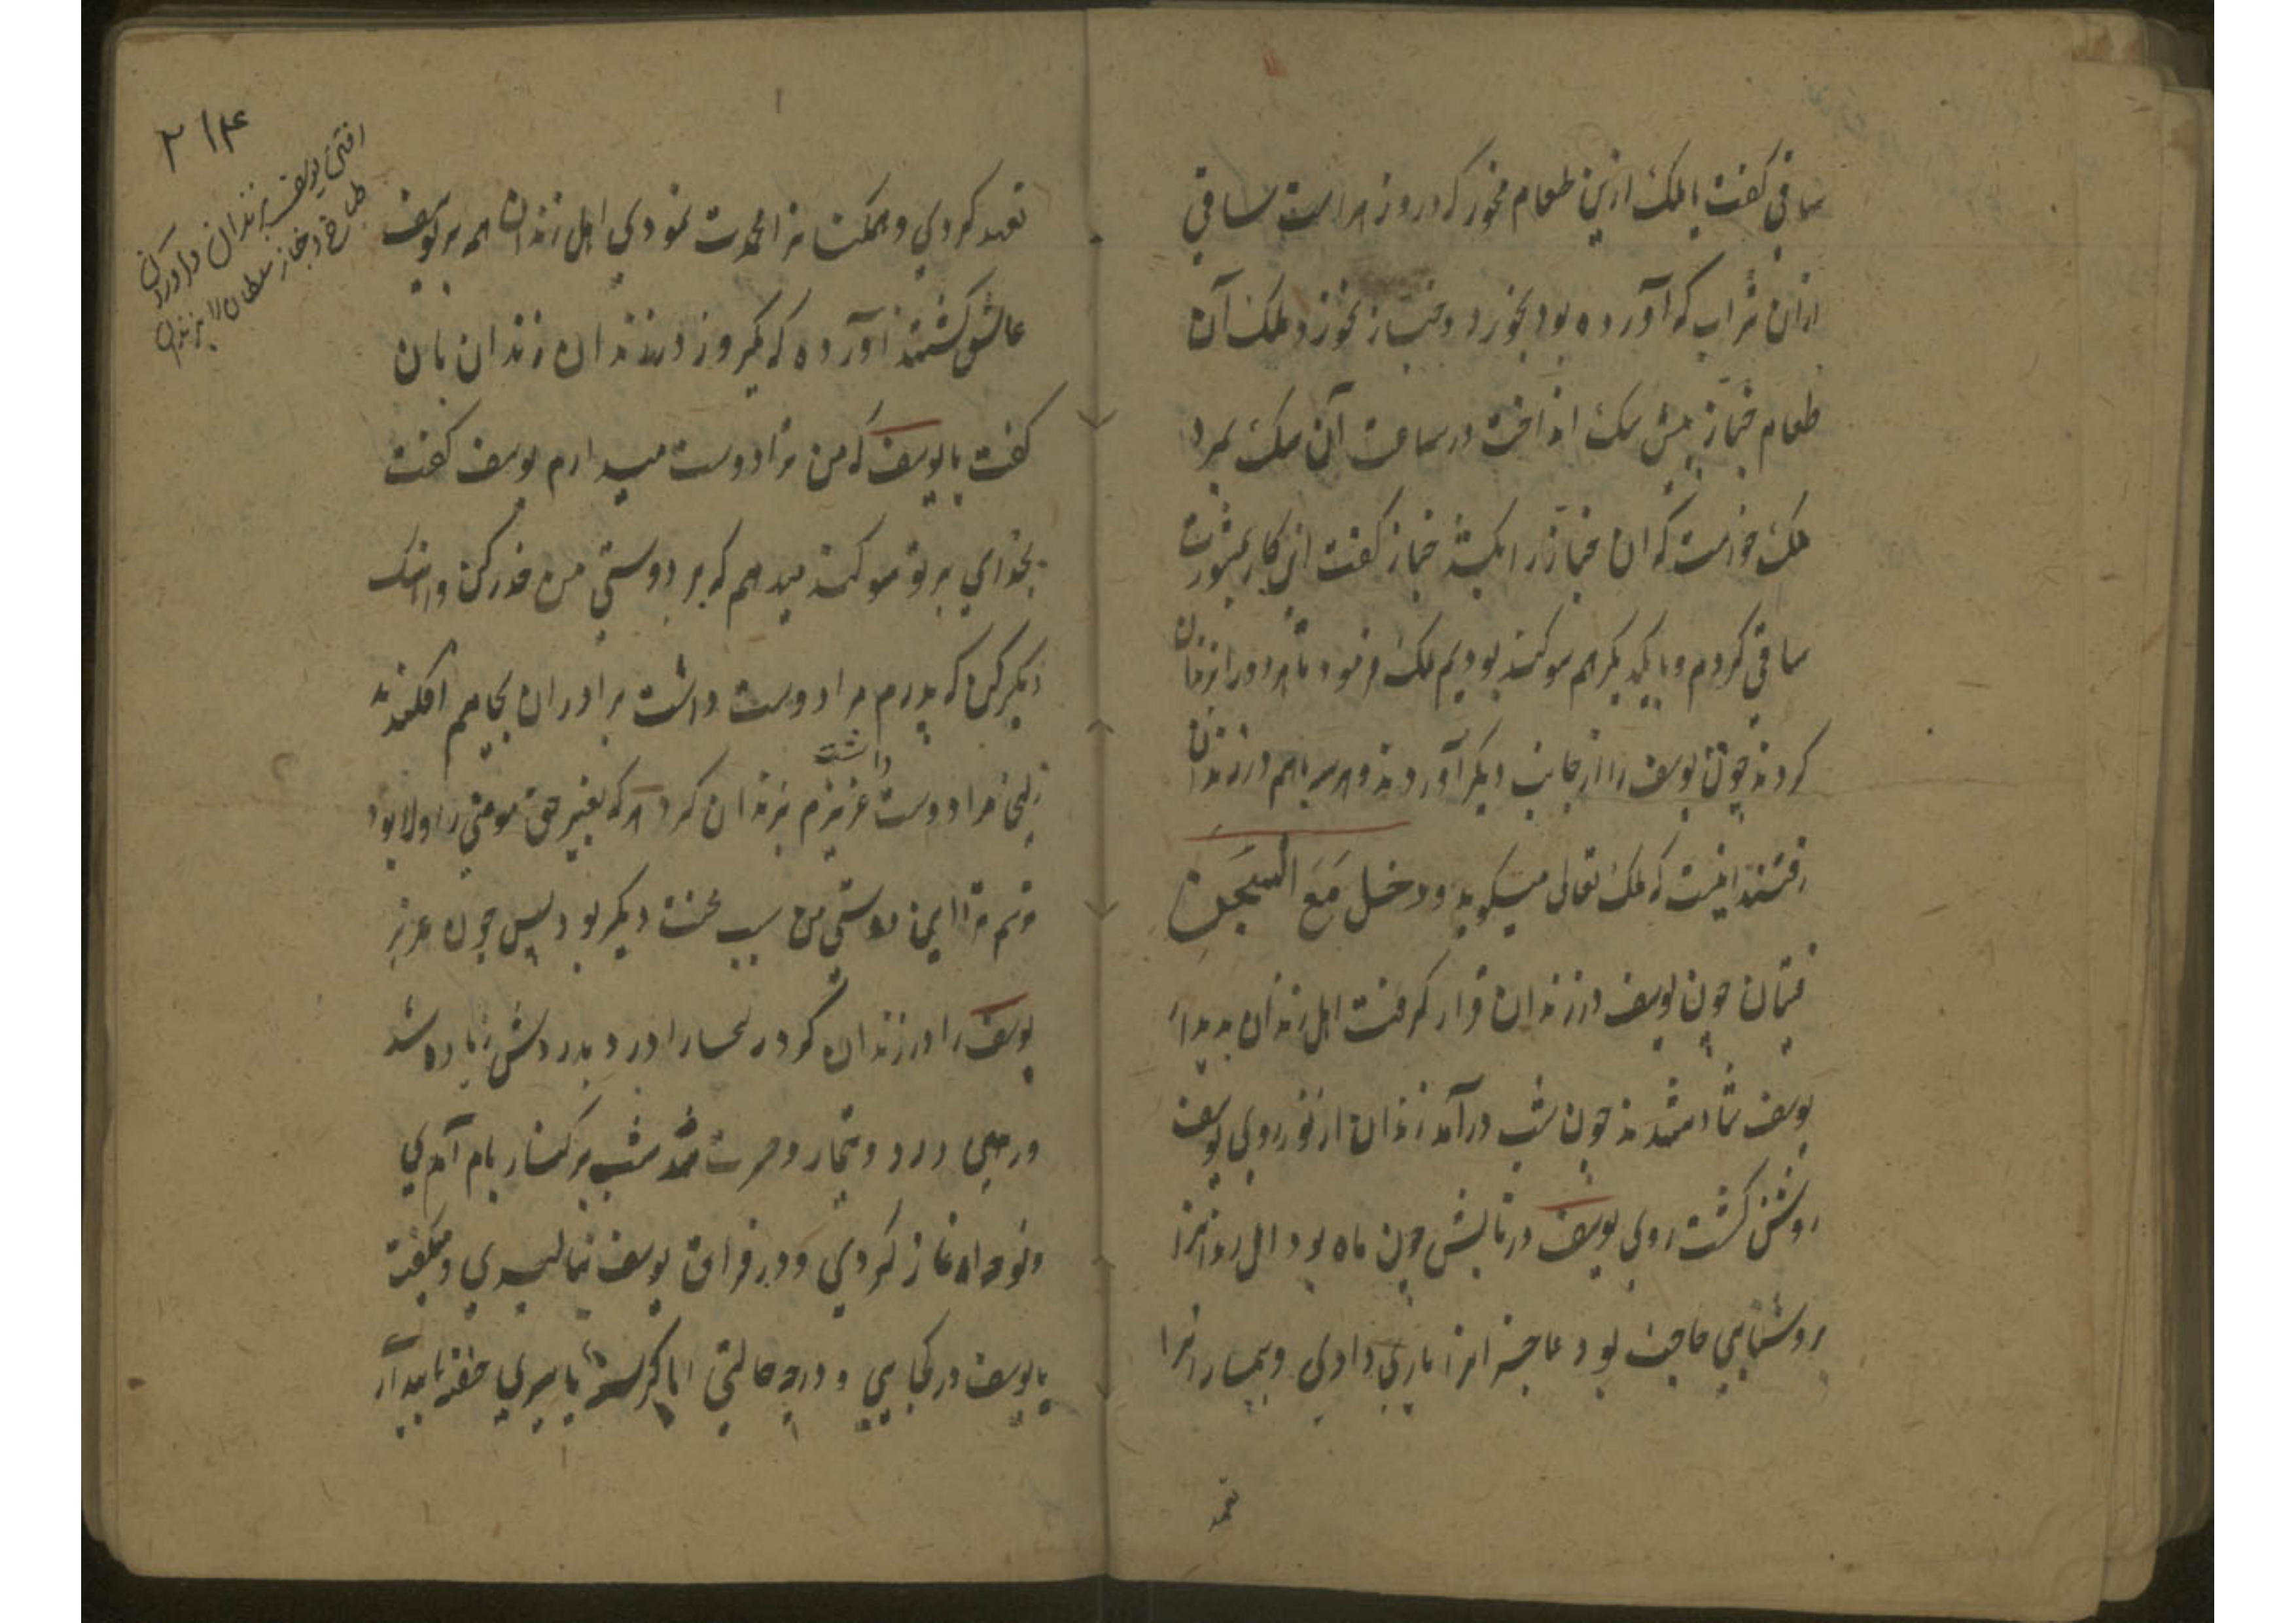 ساقی گفت یا ملک ازین طعام مخور که درو زهر است ساقی
ازان شراب که آورده بود بخورد و خباز نخورد ملک آن
طعام خباز پیش سک انداخت در ساعت آن سک بمرد
ملک خواست که ان خباز را بکشد خباز کفت این کار بمشورت
ساقی کردم و با یکدیکر هم سوکند بودیم ملک فرمود تا هر دو را بزندان
کردند چون یوسف را از جانب دیکر آوردند و هر سه باهم در زندان
رفتند اینست که ملک تعالی میکوید ودخل مَعَهُ السِجن
فتیان چون یوسف در زندان قرار کرفت اهل زندان بدیدار
یوسف شاد شدند چون شب درآمد زندان از نور روی یوسف
روشن کشت روی یوسف در تابش چون ماه بود اهل زندانرا
بروشنایی حاجت نبود عاجزانرا یاری دادی و بیمارانرا
تعهد
۲۱۴
رفتن یوسف بزندان و آوردن
طباخ و خباز سلطان را بزندان
تعهد کردی و همکنانرا خدمت نمودی اهل زندان همه بر یوسف
عاشق کشتند آورده که یکروز در زندان زندان بان
کفت یا یوسف که من ترا دوست میدارم یوسف کفت
بخدای بر تو سوکند میدهم که بر دوستی من حذر کن و اهنک
دیکر کن که پدرم مرا دوست داشت برادران بچاهم افکندند
زلیخا مرا دوست داشت عزیزم بزندان کرد هر که بغیر حق مومنی را اولا بود
ترسم ترا این دوستی من سبب محنت دیکر بود پس چون عزیز
یوسف را در زندان کرد زلیخا را درد بدر دش زیاده شد
و رهین درد و تیمار و حسرت شد شب بر کنار بام آمدی
و نوحه اغاز کردی و در فراق یوسف بنالیدی و میکفت
یا یوسف در کجایی و در چه حالتی ایا کرسنه یا سیری خفته یا بیدار